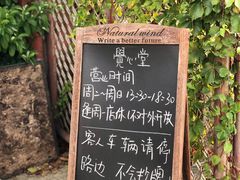 Natural wind
Write a better future
覺心堂
营业时间
周二~周日 13:30-18:30
逢周一店休 不对外开放
客人车辆请停
路边 不会